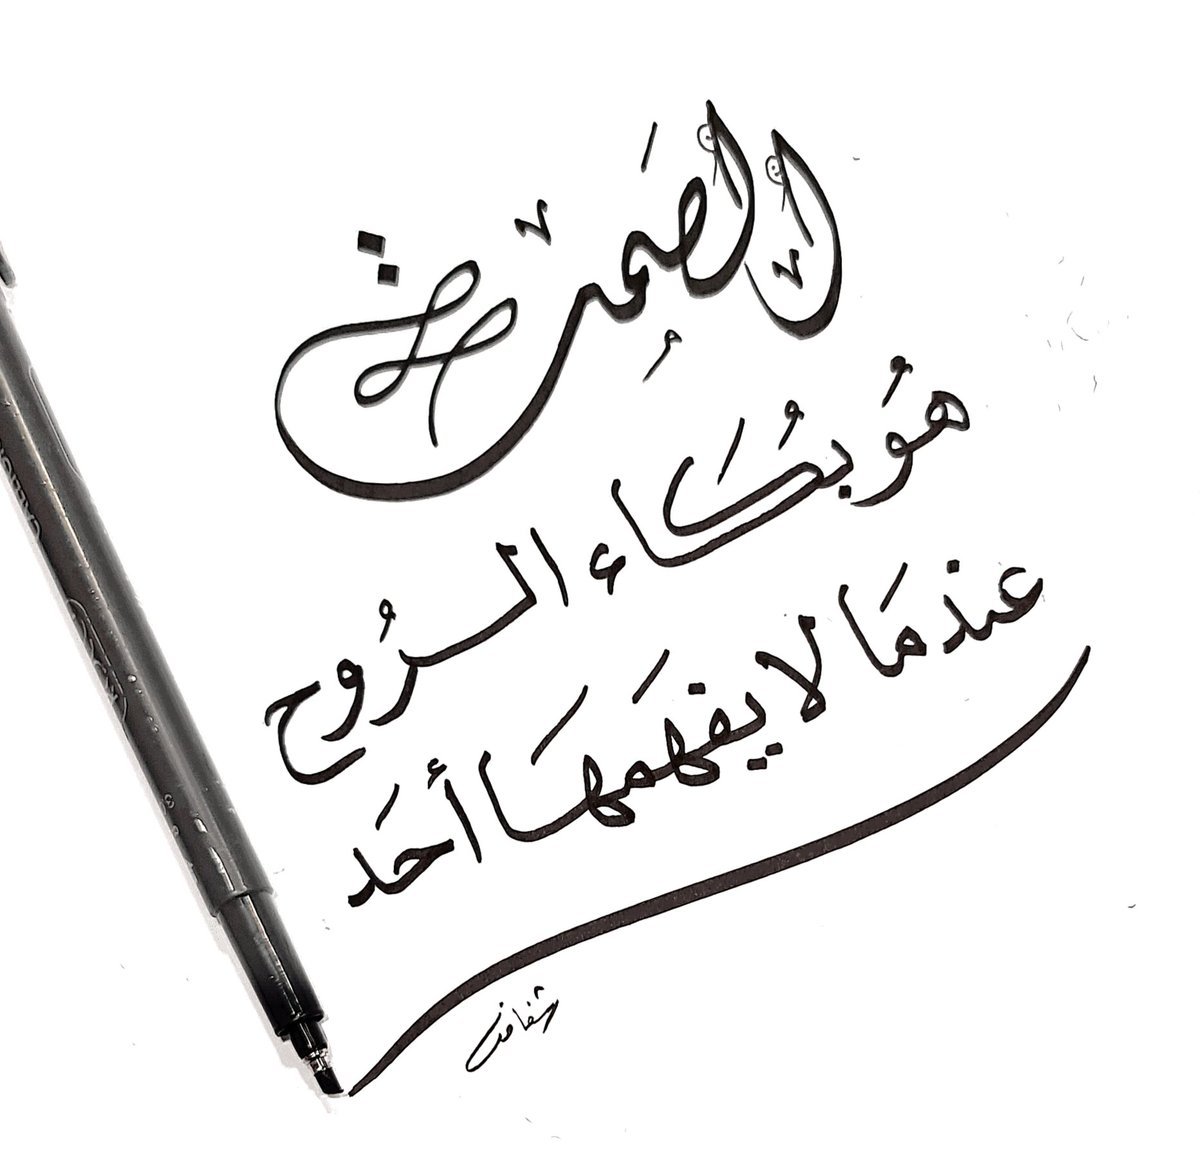 الصَمت
هُو بُكَاء الرُوح
عندمَا لا يفهَمهَا أحَد